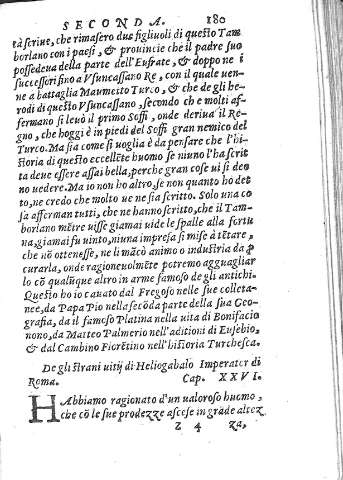 SECONDA. 180
tà scriue, che rimasero due figliuoli di questo Tam
borlano con i paesi, & prouincie che il padre suo
possedeua della parte dell'Eufrate, & doppo ne i
successori fino a Vsuncassano Re, con il quale uen-
ne a battaglia Maumetto Turco, & che de gli he-
rodi di questo Vsuncassano, secondo che molti af-
fermano si leuò il primo Soffi, onde deriua il Re-
gno, che hoggi è in piedi del Soffi gran nemico del
Turco. Ma sia come si uoglia è da pensare che l'hi-
storia di questo eccellēte huomo se niuno l'ha scrit
ta deue essere assai bella, perche gran cose ui si deo
no uedere. Ma io non ho altro, se non quanto ho det
to, ne credo che molto ue ne sia scritto. Solo una co
sa afferman tutti, che ne hanno scritto, che il Tam-
borlano mētre uisse giamai uide le spalle alla fortu
na, giamai fu uinto, niuna impresa si mise à tētare,
che nō ottenesse, ne li mācò animo o industria da p
curarla, onde ragioneuolmēte potremo agguagliar
lo cō qualūque altro in arme famoso de gli antichi.
Questo ho io cauato dal Fregoso nelle sue colletta-
nee, da Papa Pio nella secōda parte della sua Geo-
grafia, da il famoso Platina nella uita di Bonifacio
nono, da Matteo Palmerio nell'aditioni di Eusebio,
& dal Cambino Fiorētino nell'historia Turchesca.
De gli strani uitij di Heliogabalo Imperator di
Roma. Cap. XXVI.
HAbbiamo ragionato d'un ualoroso huomo,
che cō le sue prodezze ascese in grāde altez
Z 4 za,